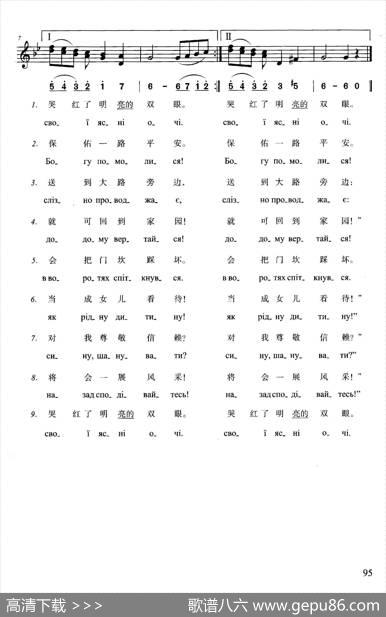 7 I II
5 4 3 2 1 7 6 - 6 7 1 2 5 4 3 2 3 #5 6 - 6 0
1. 哭 红了明 亮的 双 眼。 哭 红了明 亮的 双 眼。
сво. ї яс. ні о. чі. сво. ї яс. ні о. чі.
2. 保 佑一路 平 安。 保 佑一路 平 安。
Бо. гу по. мо. ли. ся! Бо. гу по. мо. ли. ся!
3. 送 到大路 旁 边, 送 到大路 旁 边:
сліз. но про.вод. жа. є, сліз. но про.вод. жа. є:
4. 就 可回到 家 园! 就 可回到 家 园!”
до. до. му вер. тай.ся! до. до. му вер. тай.ся!”
5. 会 把门坎 踩 坏。 会 把门坎 踩 坏.
в во. ро. тях спіт. кнув.ся. в во. ро. тях спіт. кнув.ся.
6. 当 成女儿 看 待! 当 成女儿 看 待!”
як рід. ну ди. ти. ну! як рід. ну ди. ти. ну!”
7. 对 我尊敬 信 赖? 对 我尊敬 信 赖?”
си. ну, ша. ну. ва. ти? си. ну, ша. ну. ва. ти?”
8. 将 会一展 风 采! 将 会一展 风 采!”
на. зад спо. ді. вай. тесь! на. зад спо. ді. вай. тесь!”
9. 哭 红了明 亮的 双 眼。 哭 红了明 亮的 双 眼。
сво. ї яс. ні о. чі. сво. ї яс. ні о. чі.
95
高清下载 >>> 歌谱八六 www.gepu86.com